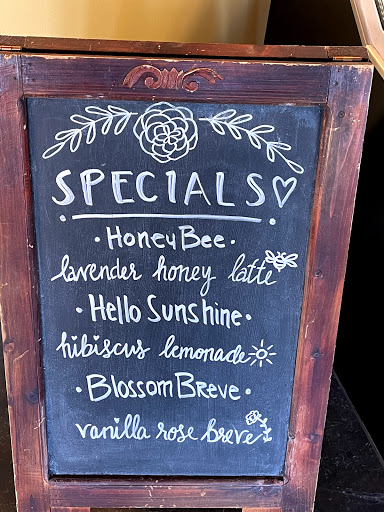 SPECIALS
• Honey Bee •
lavender honey latte
• Hello Sunshine •
hibiscus lemonade
• Blossom Breve •
vanilla rose breve